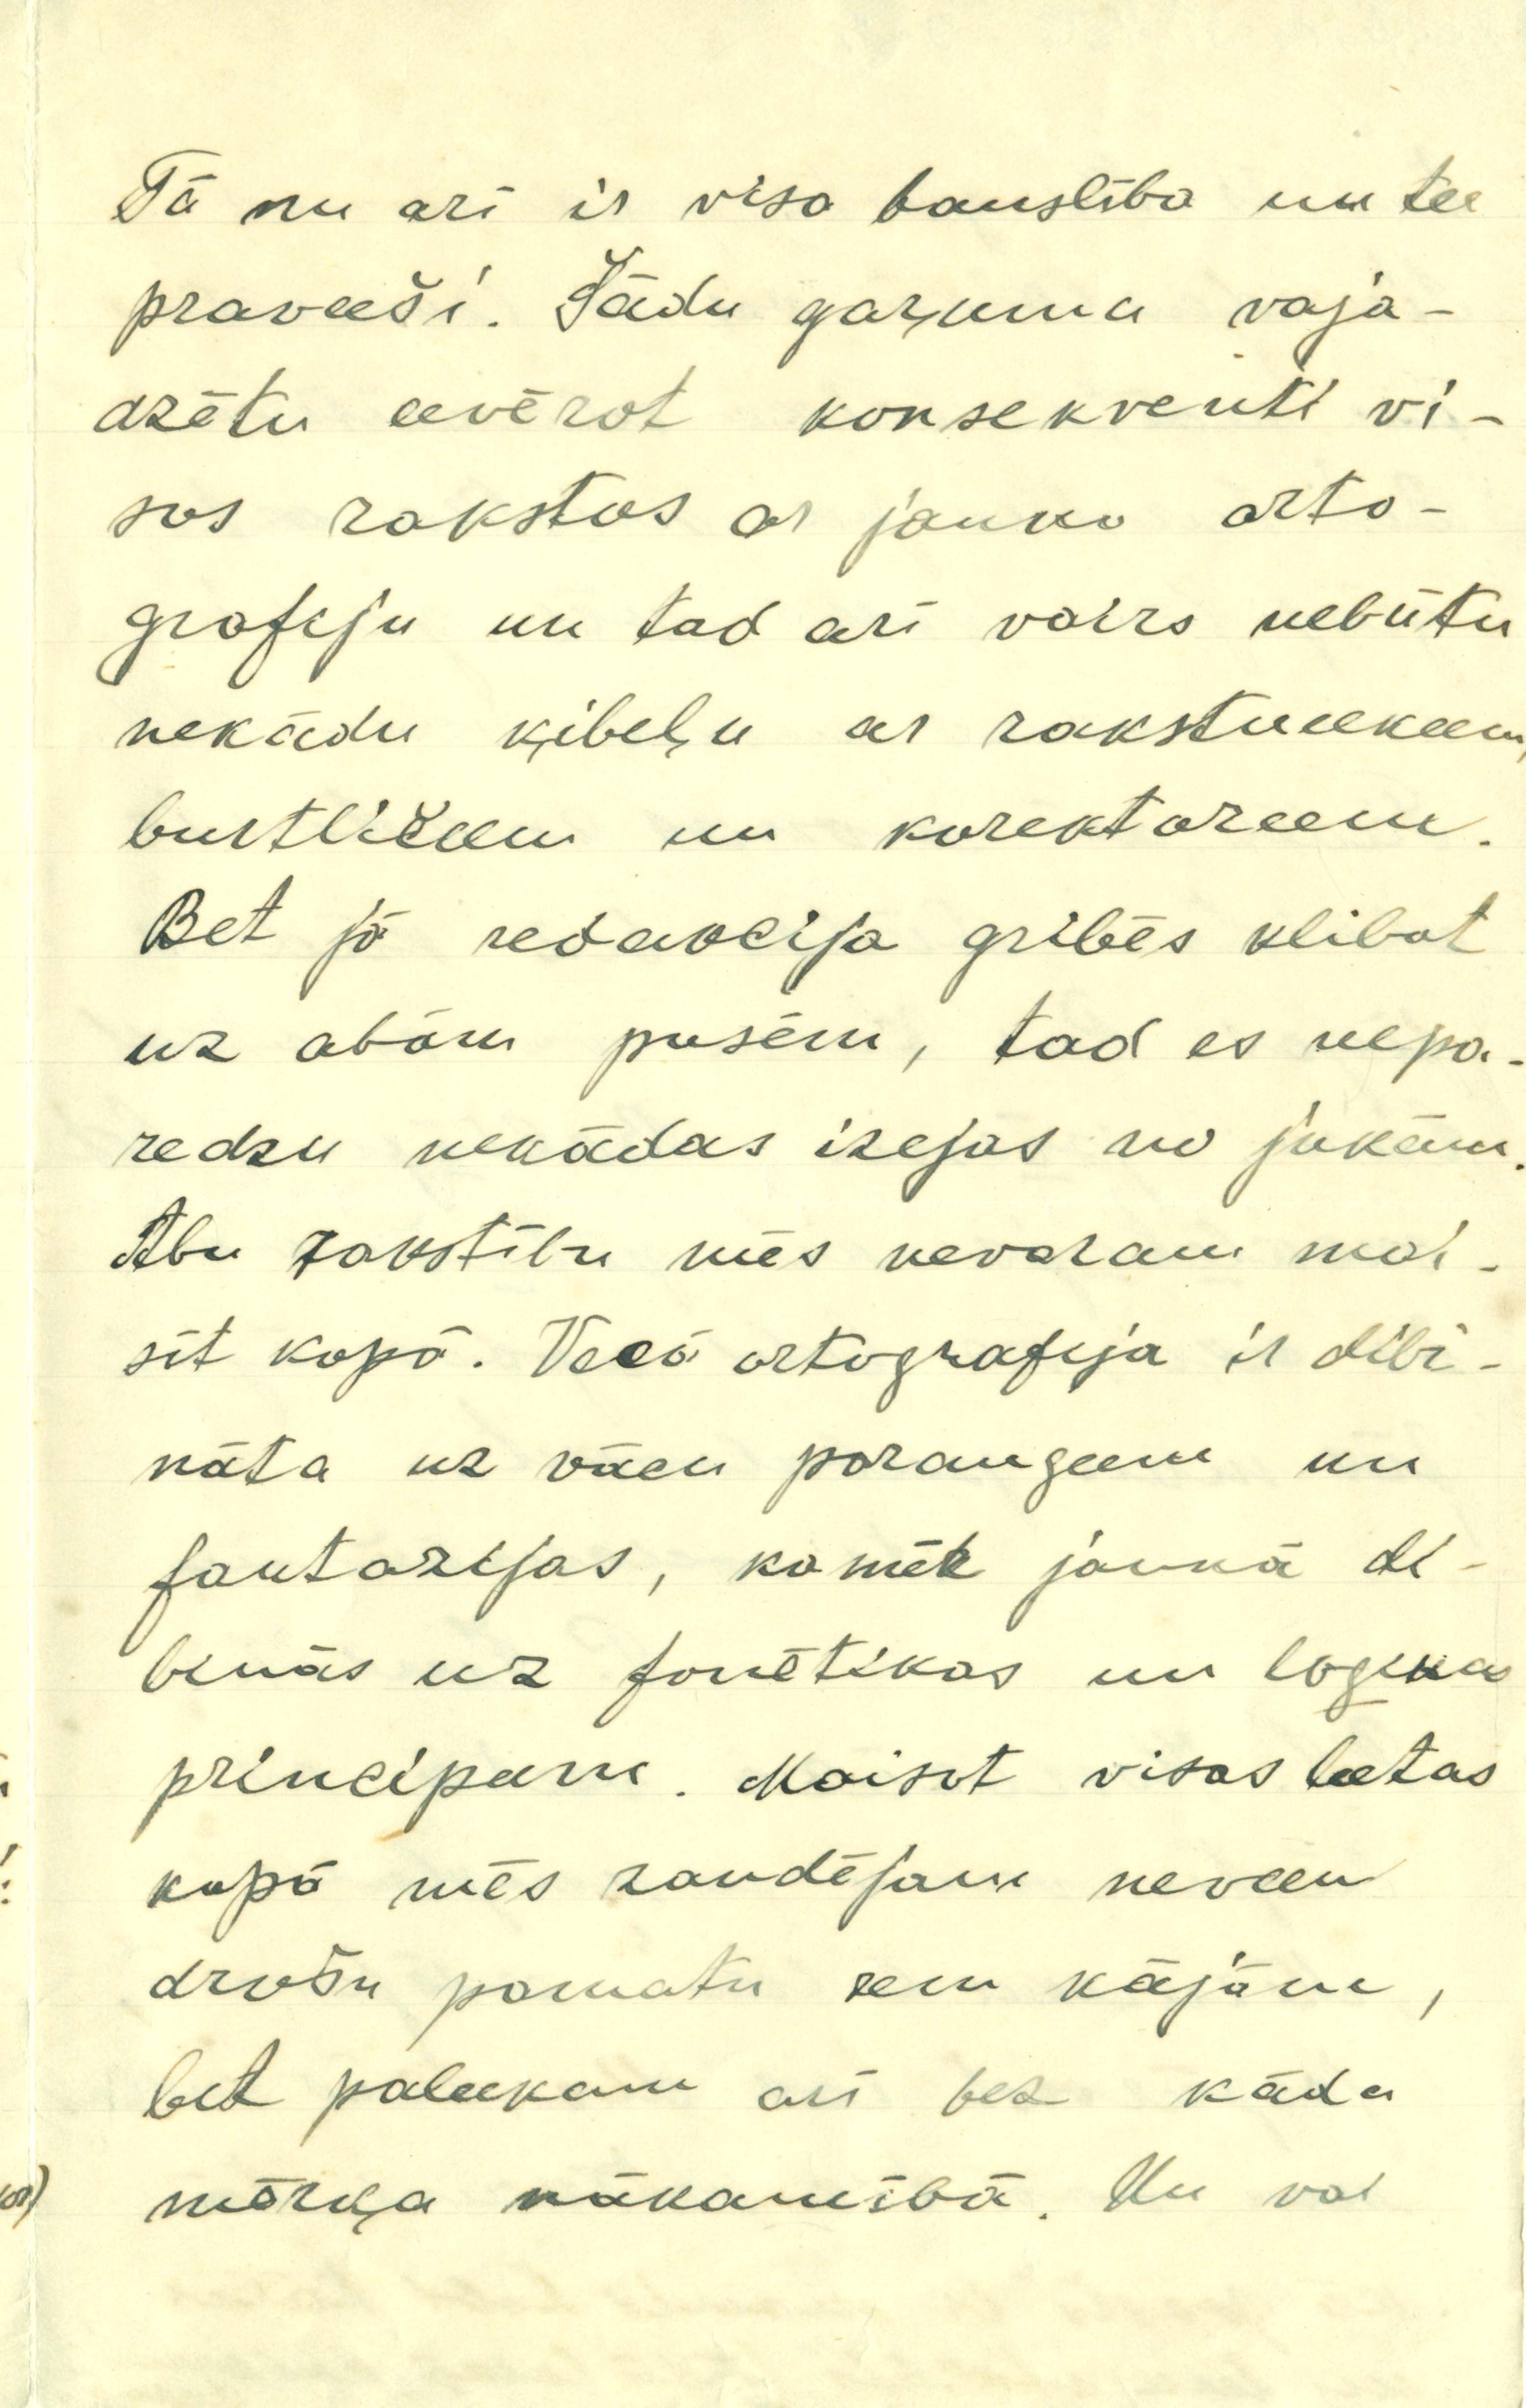 Tā nu ari ir visa bauslība un tee
praveeši. Šādu gaŗumu vaja-
dzētu eevērot konsekventi vi-
sos rakstos ar jauno orto-
grafiju un tad ari vairs nebūtu
nekādu ķibeļu ar rakstneekeem,
burtličeem un korektoreem.
Bet ja redakcija gribēs klibot
uz abām pusēm, tad es nepa-
redzu nekādas izejas no jukām.
Abu rakstību mēs nevaram mai-
sīt kopā. Vecā ortografija ir dibi-
nāta uz vācu paraugeem un
fantazijas, kamēr jaunā di-
binās uz fonētikas un logikas
principeem. Maisot visas leetas
kopā mēs zaudējam neveen
drošu pamatu zem kājām,
bet paleekam ari bez kāda
mērķa nākamībā. Un vai